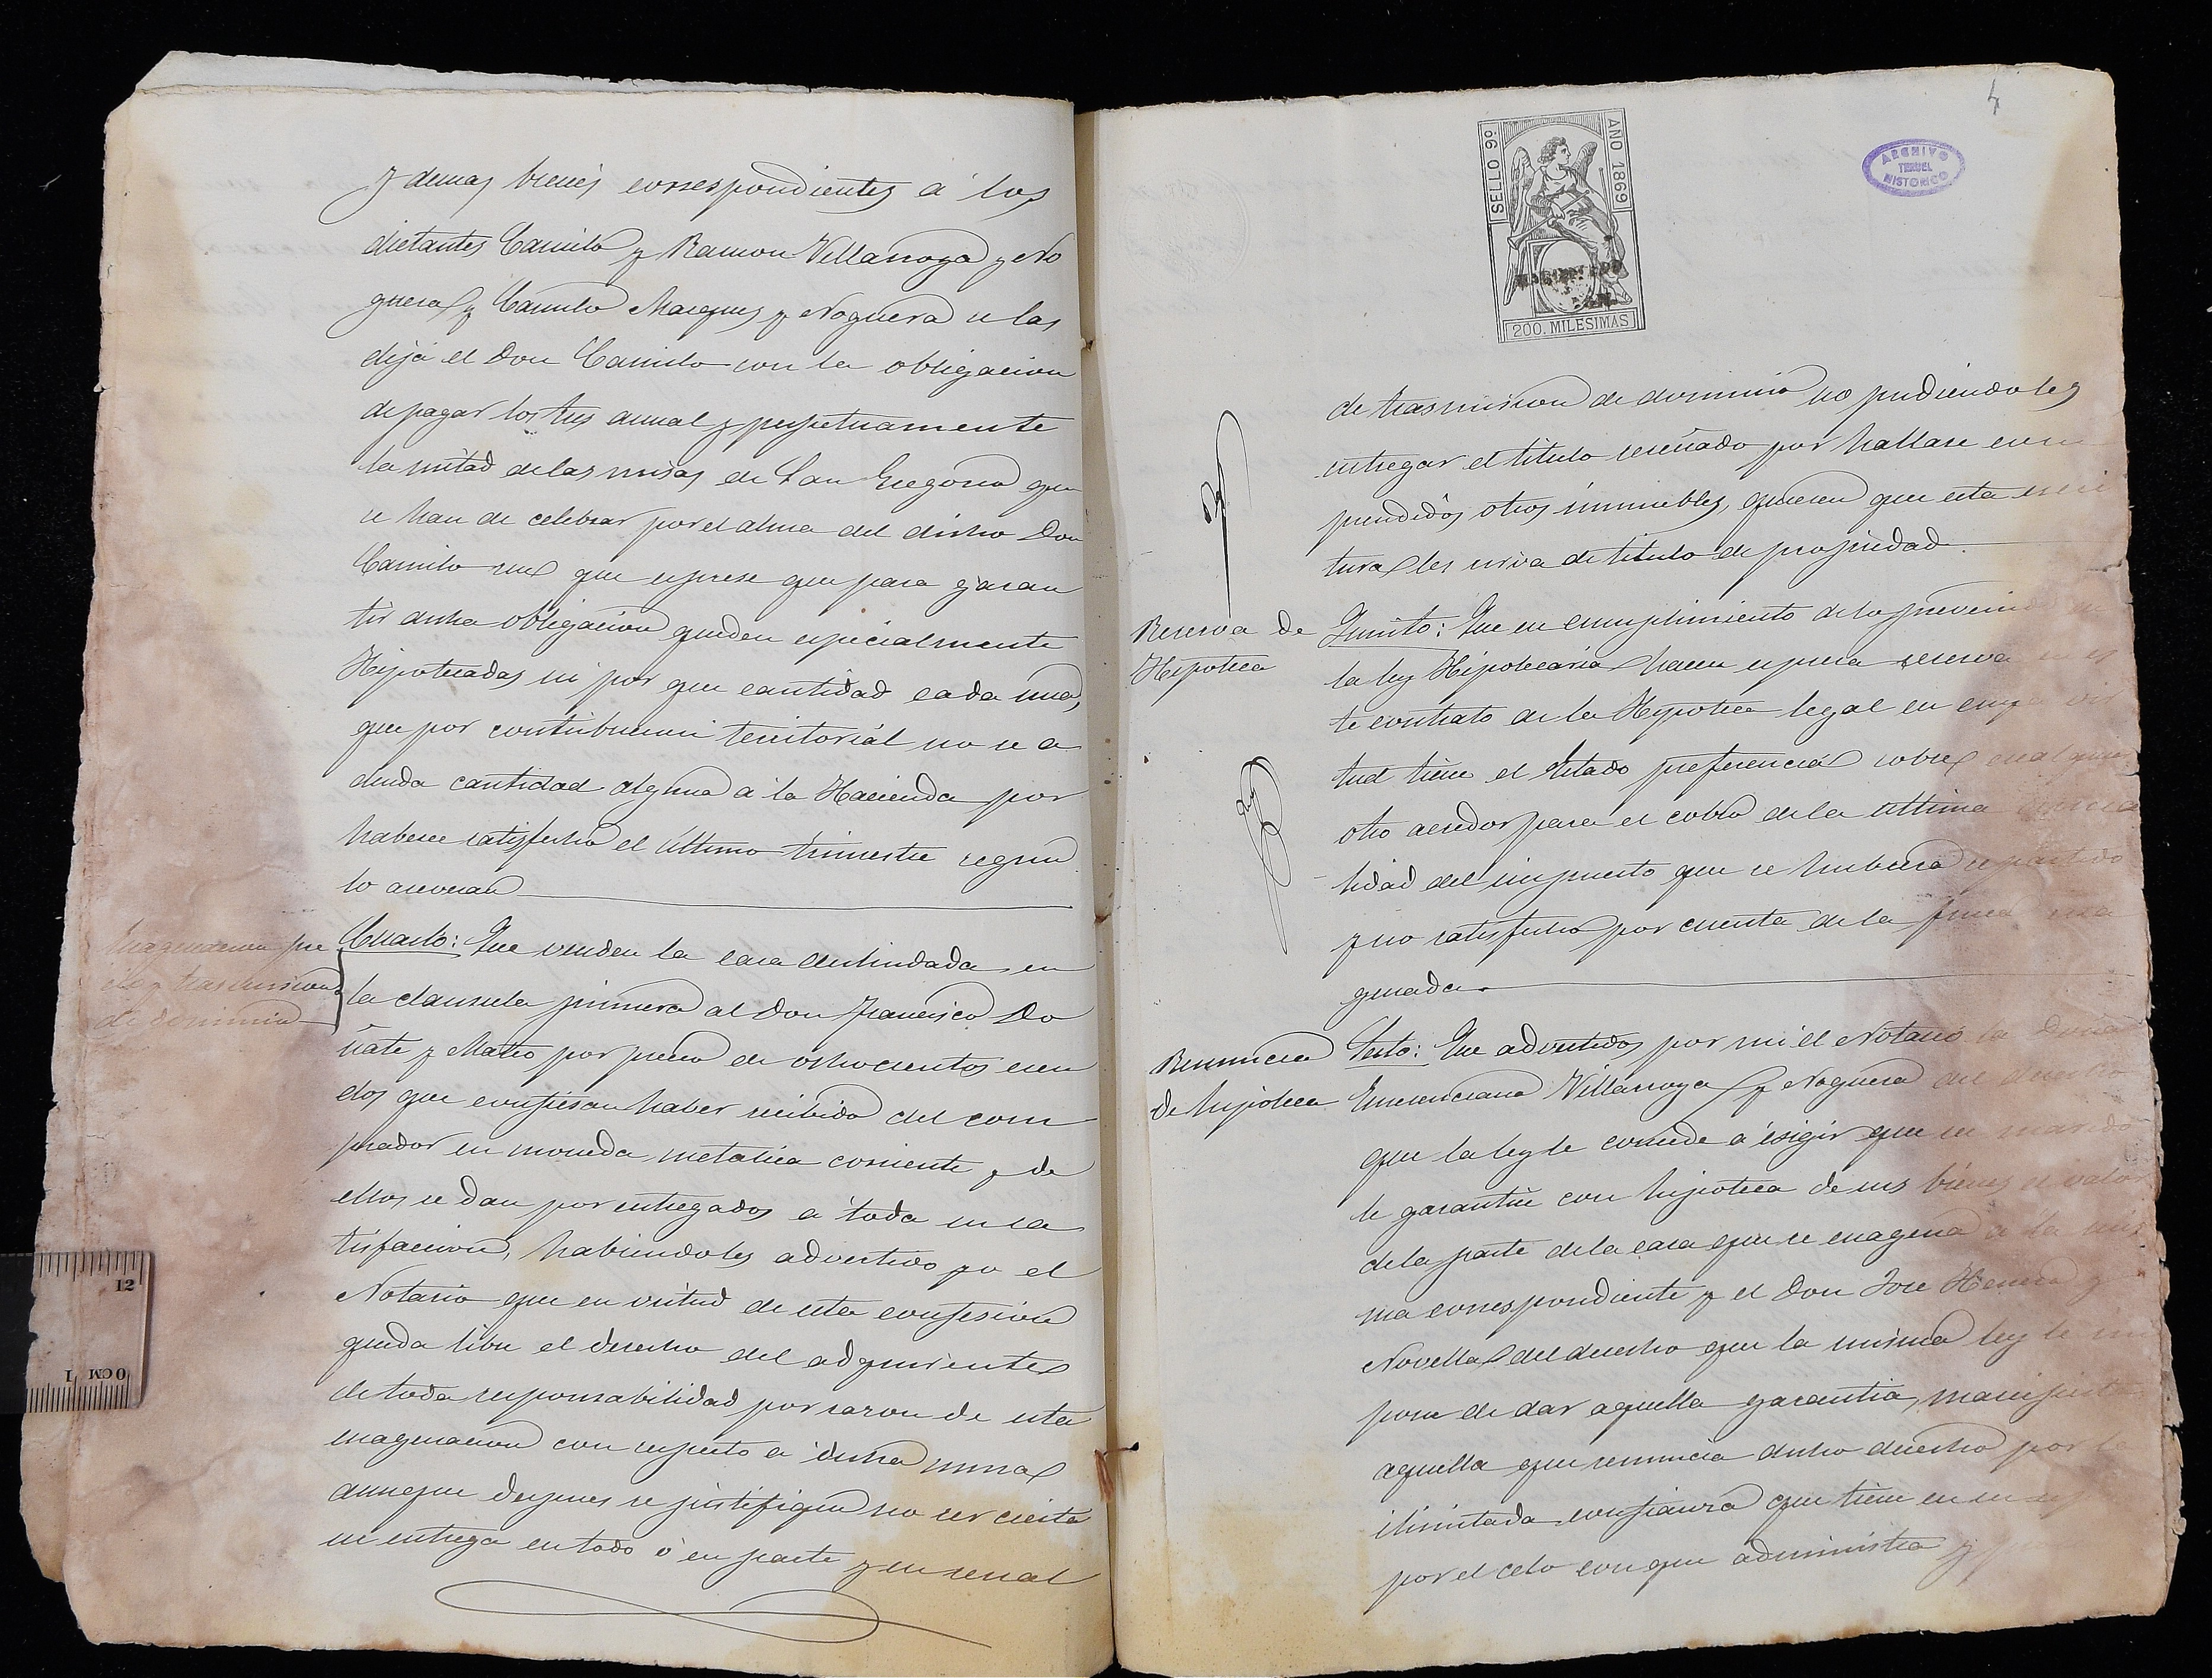 y demas bienes correspondientes á los
dictantes Camilo y Ramon Villarroya y No
guera y Camilo Marques y Noguera se las
dejá el Don Camilo con la obligacion
de pagar los tres anual y perpetuamente
la mitad de las misas de San Gregorio que
se han de celebrar por el alma del dicho Don
Camilo sin que esprese que para garan
tir dicha obligacion queden especialmente
Hipotecadas ni por que cantidad cada una,
que por contribucion territoriál no se a
deuda cantidad alguna á la Hacienda por
haberse satisfecho el último trimestre segun
lo aseveran
Enagenacion pre
cio y trasmision
de dominio
Cuarto: Que venden la casa deslindada en
la clausula primera al Don Francisco Do
ñate y Mateo por precio de ochocientos escu
dos que confiesan haber recibido del com
prador en moneda metalica corriente y de
ellos se dan por entregados á toda su sa
tisfaccion, habiendoles advertido yo el
Notario que en virtud de esta confesion
queda libre el derecho del adquirente
de toda responsabilidad por razon de esta
enagenacion con respecto á dicha suma
aunque despues se justifique no ser cierta
su entrega en todo ó en parte y en senal
4
SELLO 9º
AÑO 1869
200. MILESIMAS
ARCHIVO
TERUEL
HISTORICO
de trasmision de dominio no pudiendoles
entregar el titulo reseñado por hallarse com
prendidos otros inmuebles, quieren que esta escri
tura les sirva de titulo de propiedad.
Reserva de
Hipoteca
Quinto: Que en cumplimiento de lo prevenido en
la ley Hipotecaria hacen espresa reserva en es
te contrato de la Hipoteca legal en cuya vir
tud tiene el Estado preferencia sobre cualquier
otro acredor para el cobro de la ultima
lidad del impuesto que se hubiera repartido
y no satisfecho por cuenta de la finca ena
genada.
Renuncia
de hipoteca
Sesto: Que advertidos por mi el Notario la Doña
Emerenciana Villarroya y Noguera del derecho
que la ley le concede á esigir que su marido
le garantice con hipoteca de sus bienes el valor
de la parte de la casa que se enagena á la mis
ma correspondiente y el Don Jose Herrera y
Novella del derecho que la misma ley le im
pone de dar aquella garantia, manifiesta
aquella que renuncia dicho derecho por la
ilimitada confianza que tiene en su
por el celo con que administra y